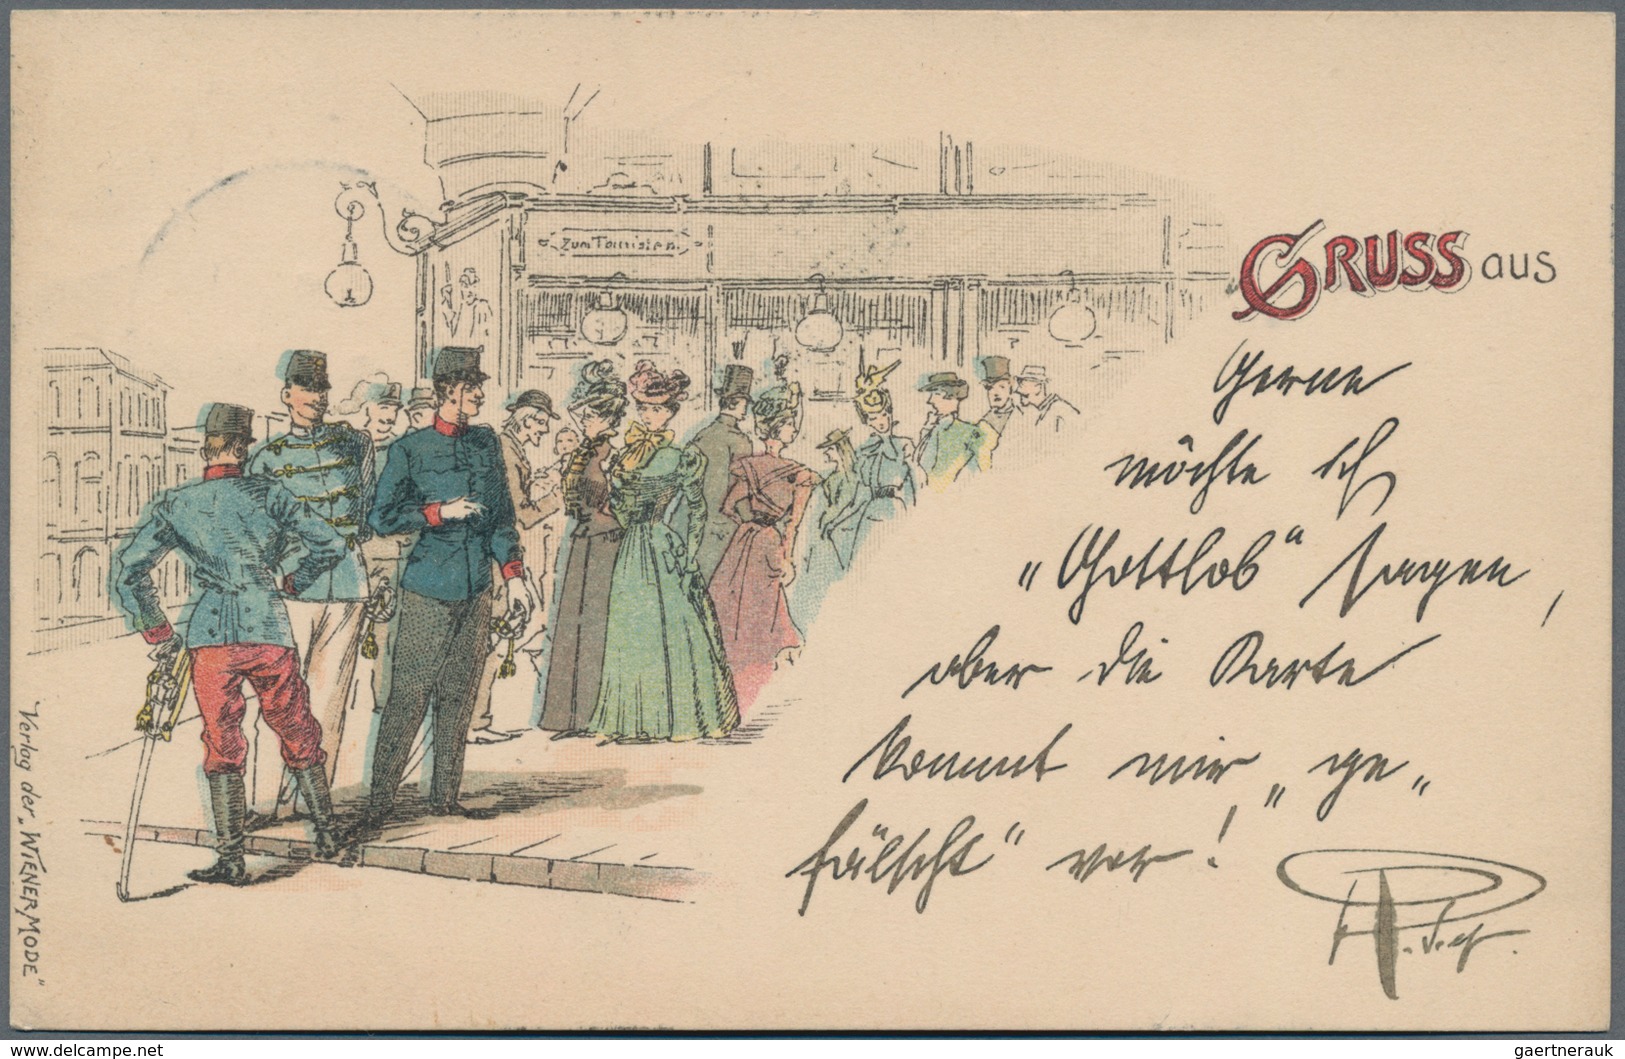 Zum Touristen.
GRUSS aus
Gerne
möchte ich
„Gottlob“ sagen,
aber die Karte
kommt mir „ge„
fälscht“ vor!
Verlag der „WIENER MODE“
www.delcampe.net
gaertnerauk